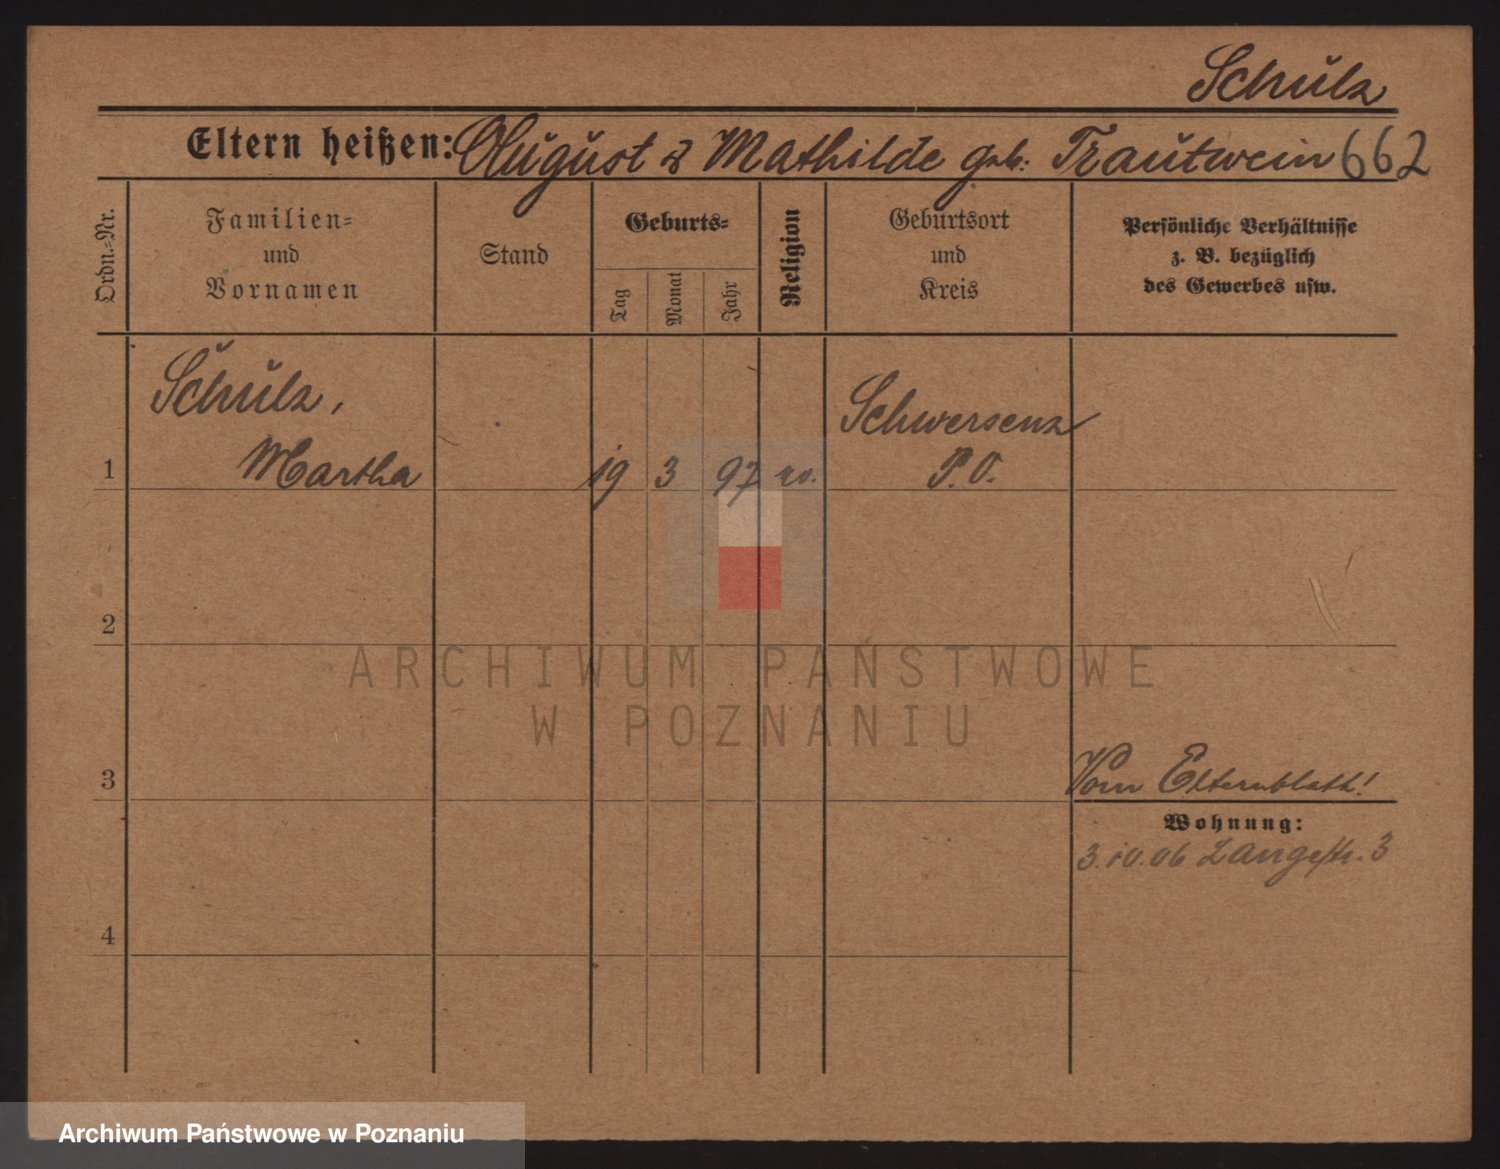 Schulz
Eltern heißen: August & Mathilde geb. Trautwein 662
Ordn.-Nr.
Familien-
und
Vornamen
Stand
Geburts-
Tag
Monat
Jahr
Religion
Geburtsort
und
Kreis
Persönliche Verhältnisse
z. B. bezüglich
des Gewerbes usw.
Schulz,
Schwersenz
1 Martha 19 3 97 P. O.
2
ARCHIWUM PAŃSTWOWE
W POZNANIU
3 Vom Elternblatt!
Wohnung:
3.10.06 Langestr. 3
4
Archiwum Państwowe w Poznaniu